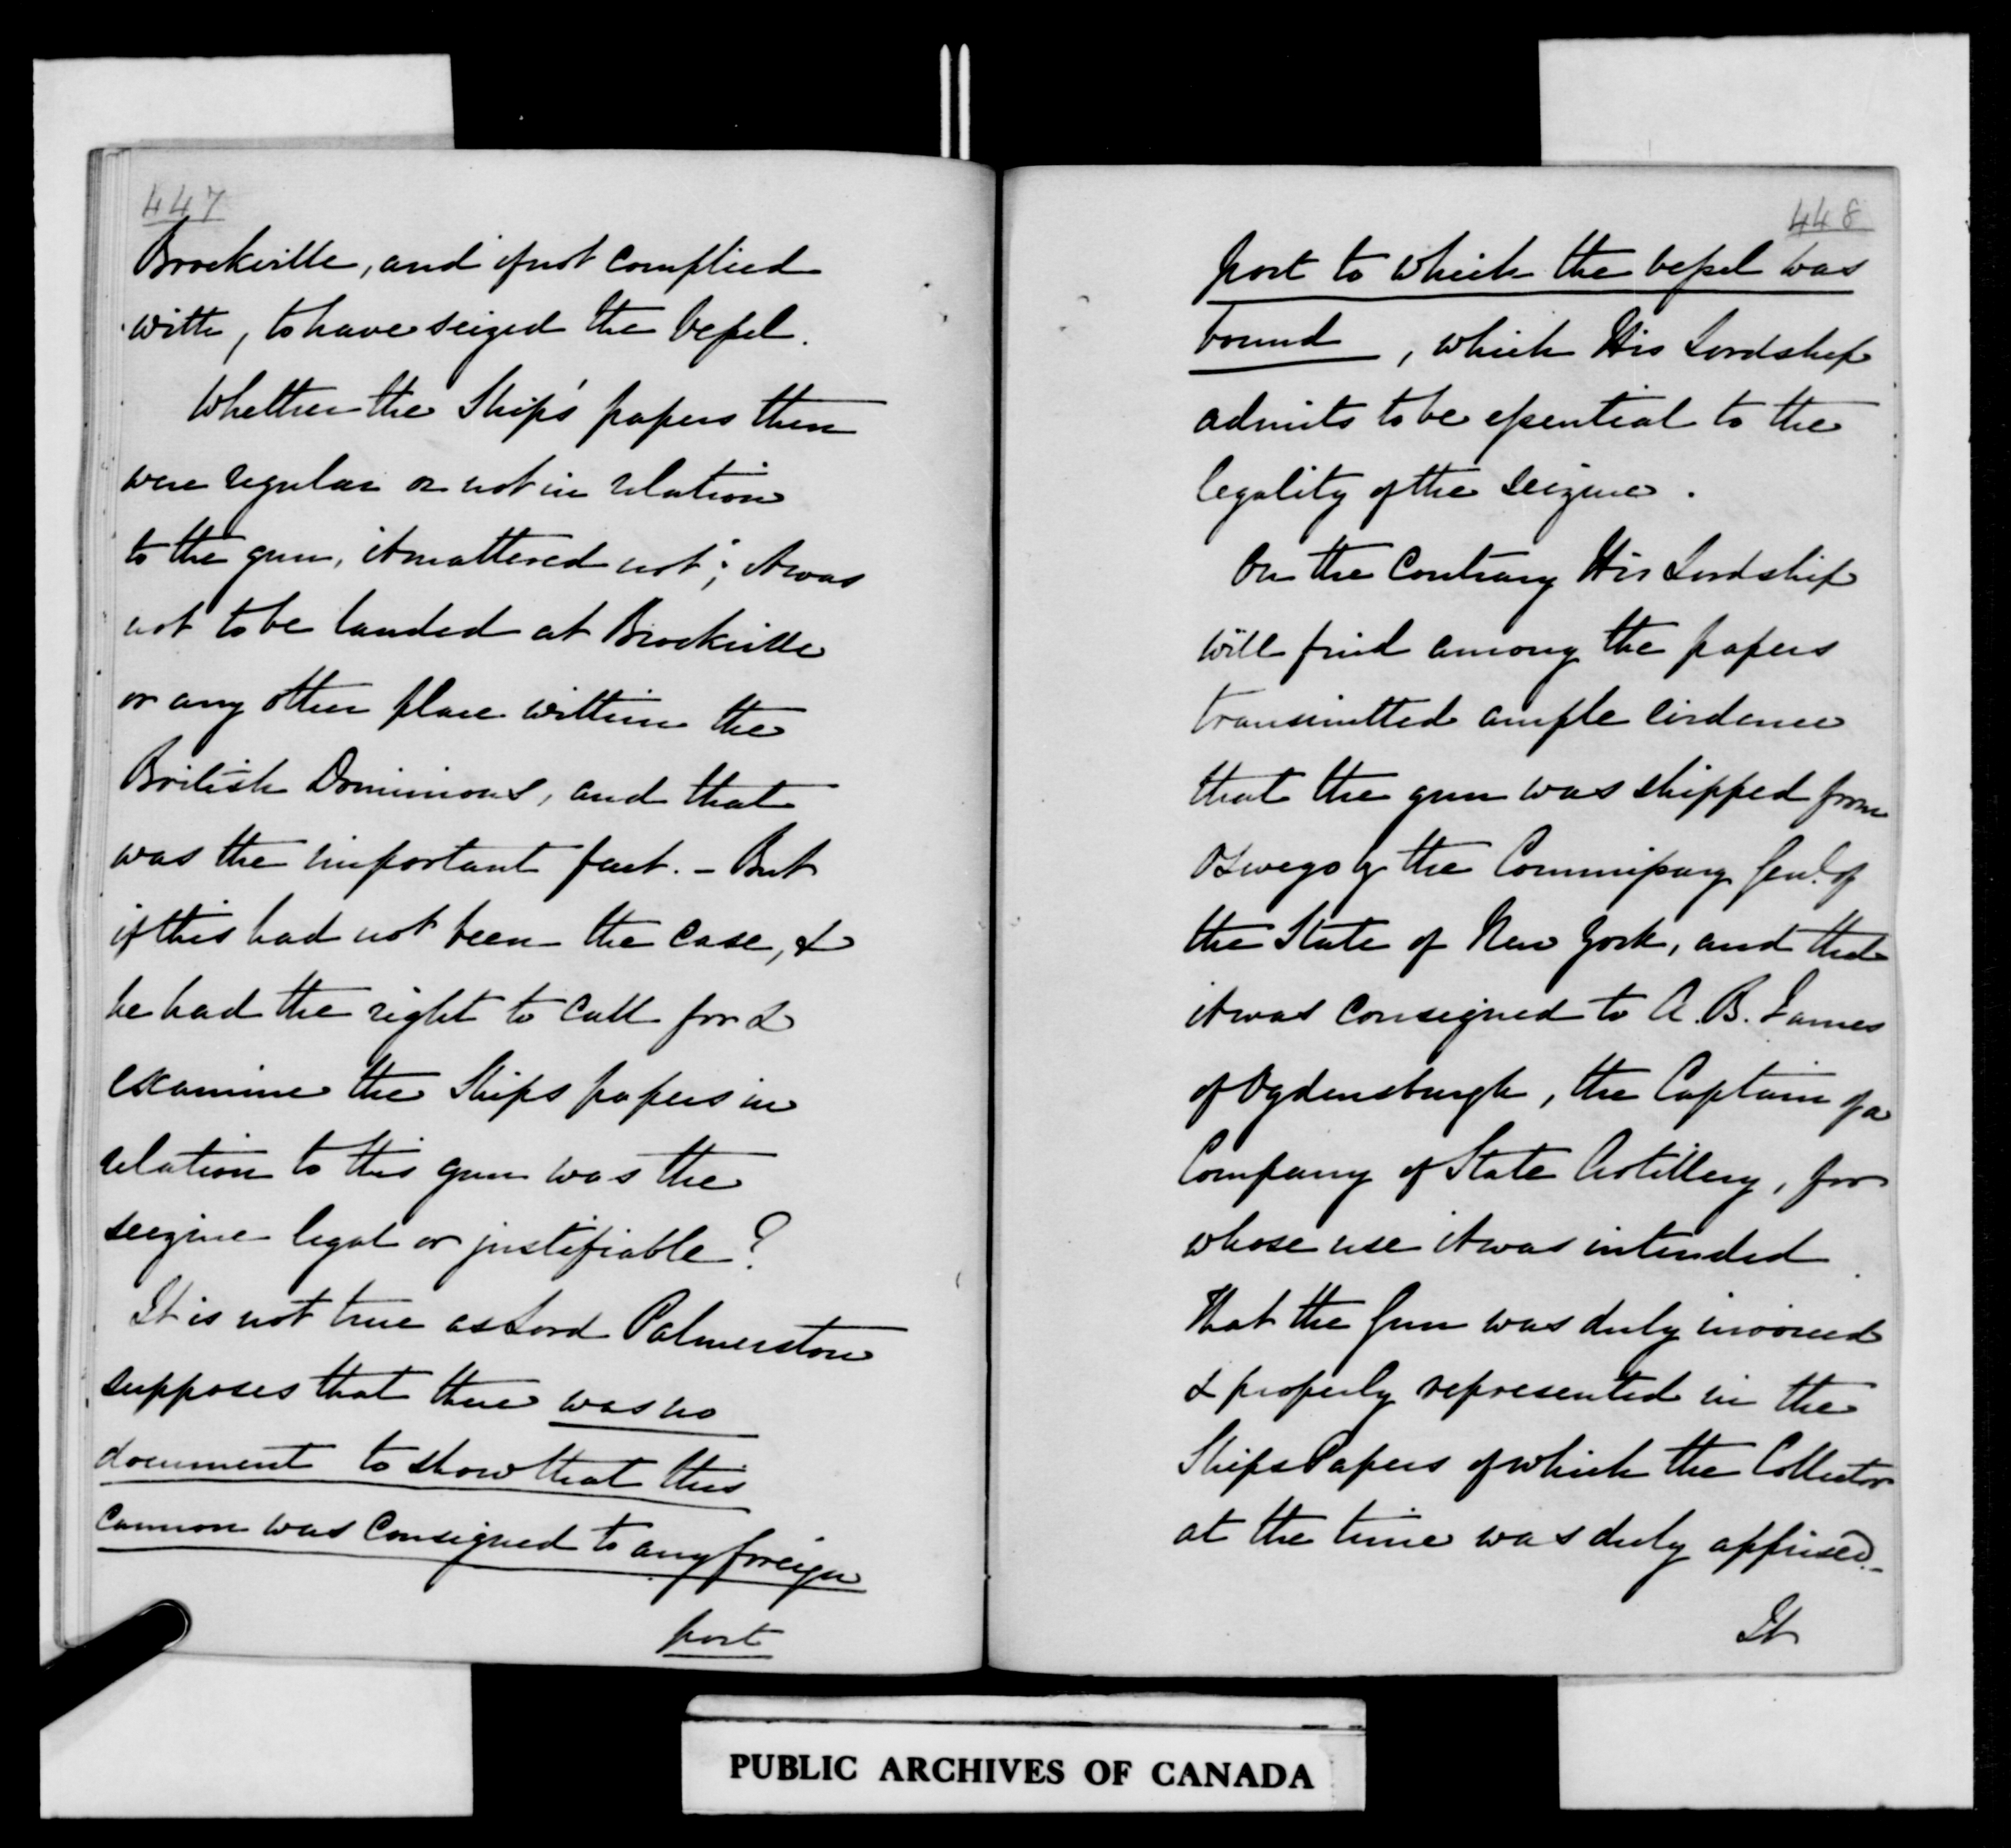 447
Brockville, and if not complied
with, to have seized the vessel.
Whether the Ships' papers then
were regular or not in relation
to the gun, it mattered not; it was
not to be landed at Brockville
or any other place within the
British Dominions, and that
was the important fact. - But
if this had not been the case, &
he had the right to call for &
examine the Ships papers in
relation to this gun was the
seizure legal or justifiable?
It is not true as Lord Palmerston
supposes that there was no
document to show that this
Cannon was consigned to any foreign
port
448
port to which the vessel was
bound, which His Lordship
admits to be essential to the
legality of the seizure.
On the Contrary His Lordship
will find among the papers
transmitted ample evidence
that the gun was shipped from
Oswego by the Commissary Genl. of
the State of New York, and that
it was consigned to A. B. James
of Ogdensburgh, the Captain of a
Company of State Artillery, for
whose use it was intended.
That the Gun was duly invoiced
& properly represented in the
Ships Papers of which the Collector
at the time was duly apprised.-
It
PUBLIC ARCHIVES OF CANADA